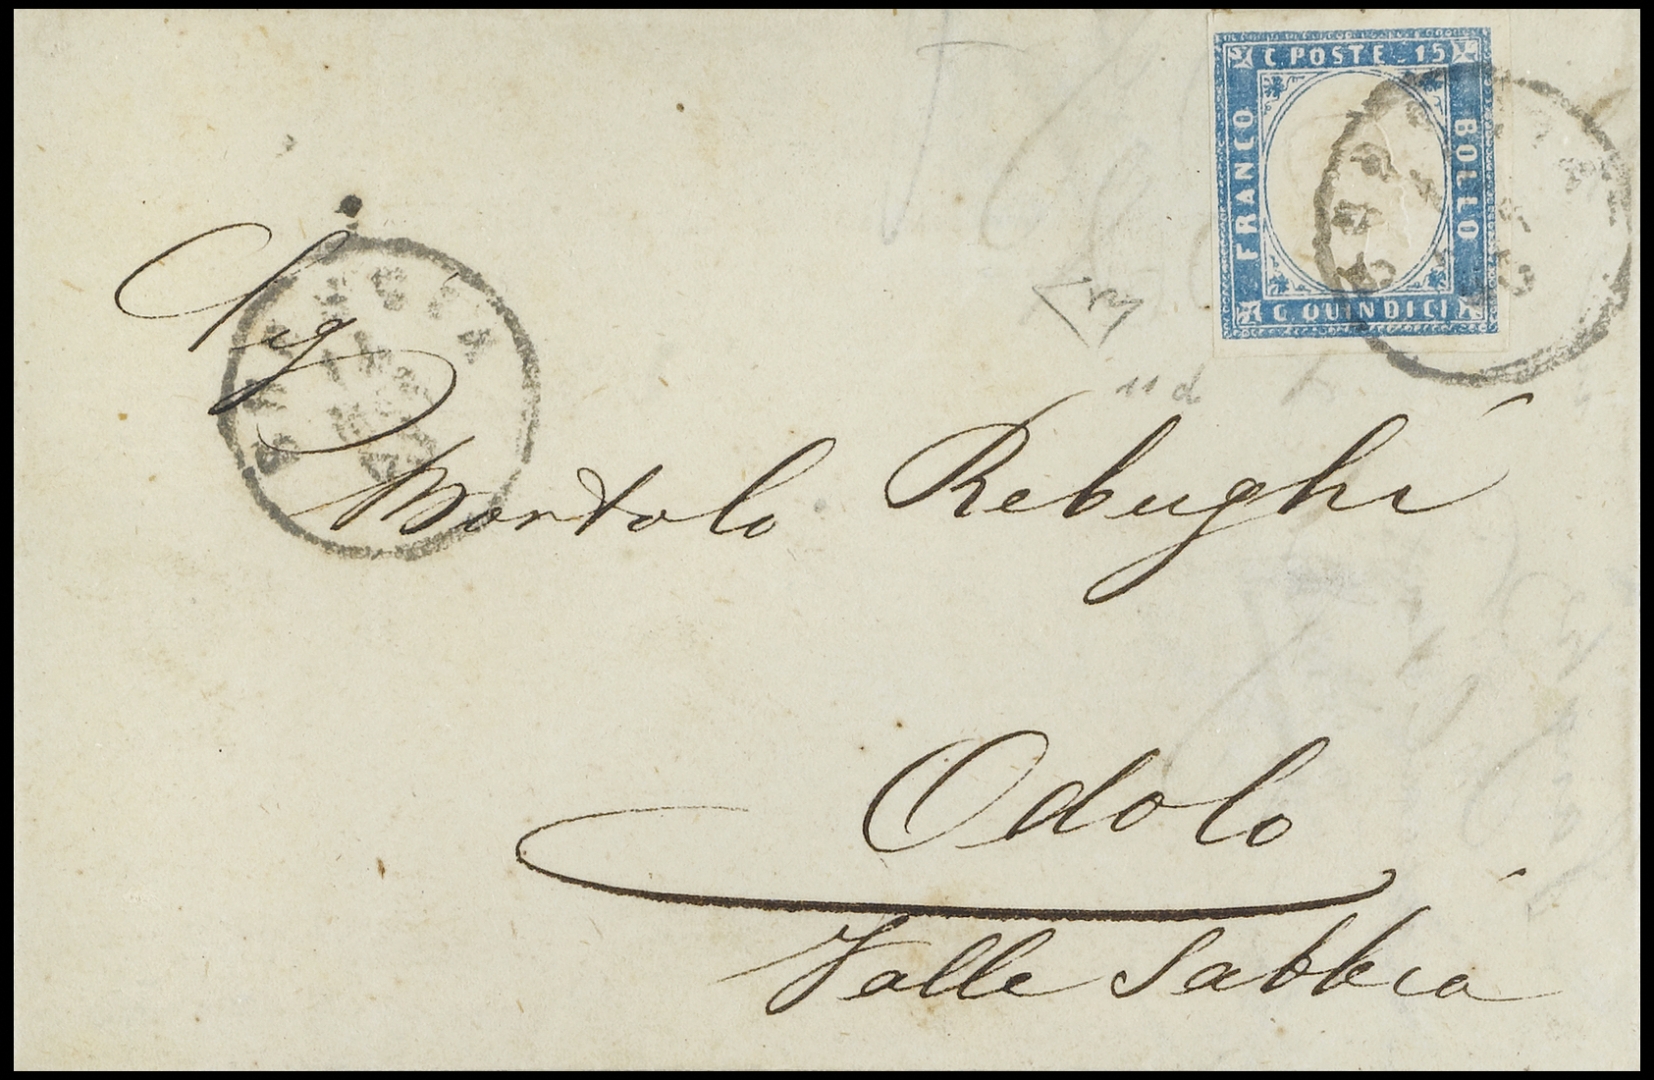 C POSTE 15
FRANCO
BOLLO
C QUINDICI
BRESCIA
11 d
Sig
Bortolo Rebughi
Odolo
Valle Sabbia